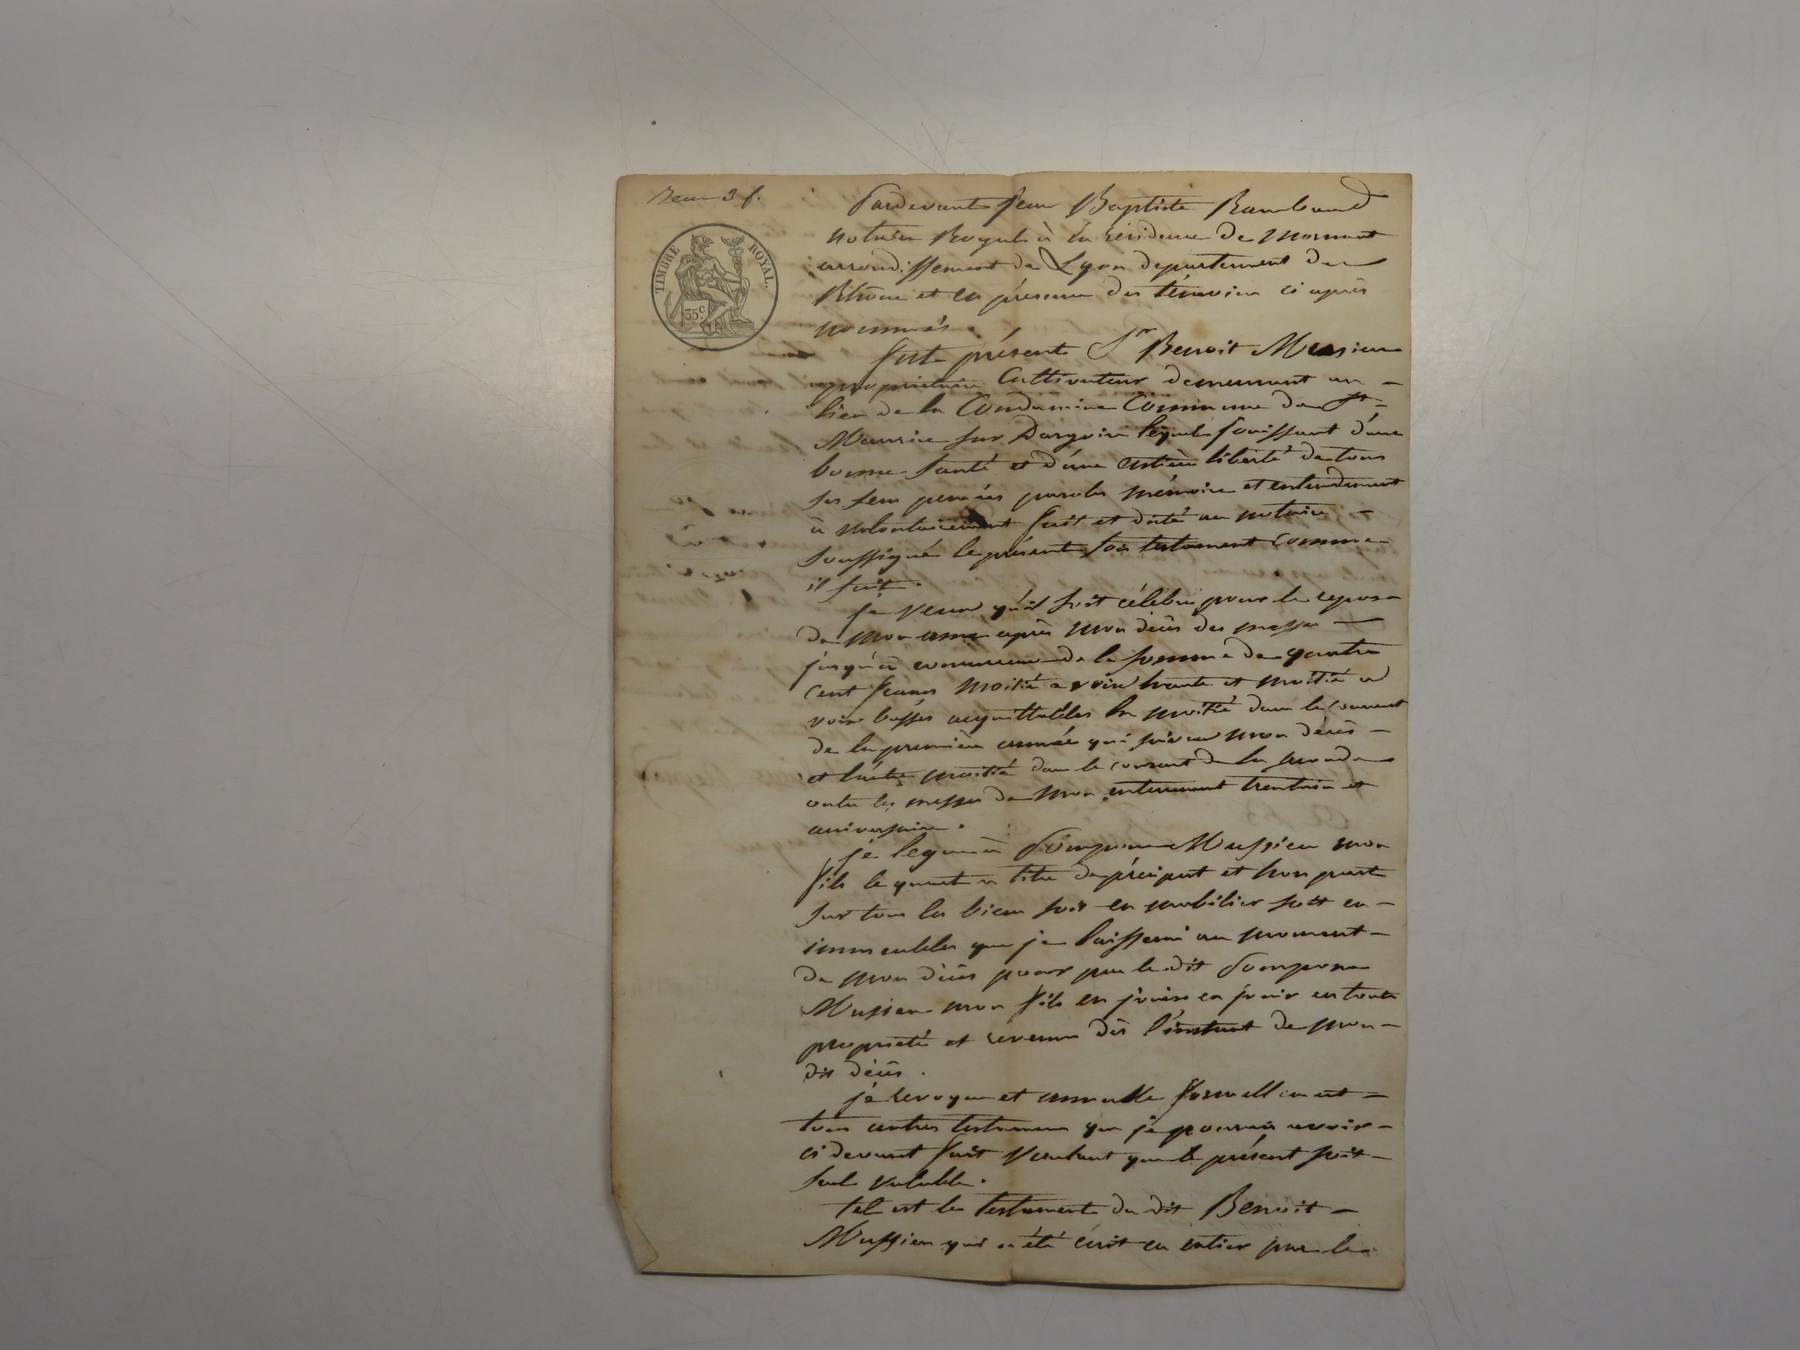 Recu 3 f.
TIMBRE ROYAL.
35 c
Pardevant Jean Baptiste Rambaud
notaire Royal à la résidence de Mornant
arrondissement de Lyon departement du
Rhône et en présence des témoins ci après
nommés.
fut présent Sr Benoit Mussieu
propriétaire Cultivateur demeurant au
lieu de la Condamine Commune de St
Maurice sur Dargoire lequel jouissant d'une
bonne santé et d'une entière liberté de tous
ses sens pensées paroles mémoire et entendement
à volontairement fait et dicté au notaire
soussigné le présent son testament comme
il suit.
je veux qu'il soit célébré pour le repos
de mon ame après mon décès des messes
jusqu'à concurrence de la somme de quatre
cent francs moitié a voix haute et moitié a
voix basses acquittables la moitié dans le courant
de la première année qui suivra mon décès
et l'autre moitié dans le courant de la seconde
outre les messes de mon enterrement trentain et
aniversaire.
je legue à Pompone Mussieu mon
fils le quart a titre de préciput et hors part
sur tous les biens soit en mobilier soit en
immeubles que je laisserai au moment
de mon décès pour par le dit Pompone
Mussieu mon fils en jouir en toute
propriété et revenu dès l'instant de mon
dit décès.
je revoque et annulle formellement
tous autres testamens que je pourrais avoir
ci devant fait voulant que le présent soit
seul valable.
tel est le testament du dit Benoit
Mussieu qui a été écrit en entier par le